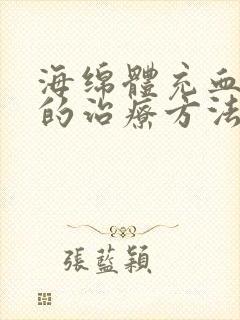 海绵體充血
的治療方法
張藍穎